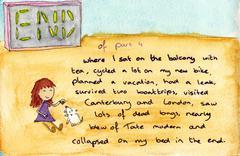 END
of part 4
where I sat on the balcony with
tea, cycled a lot on my new bike,
planned a vacation, had a leak,
survived two boattrips, visited
Canterbury and London, saw
lots of dead bogs, nearly
blew of Tate modern and
collapsed on my bed in the end.